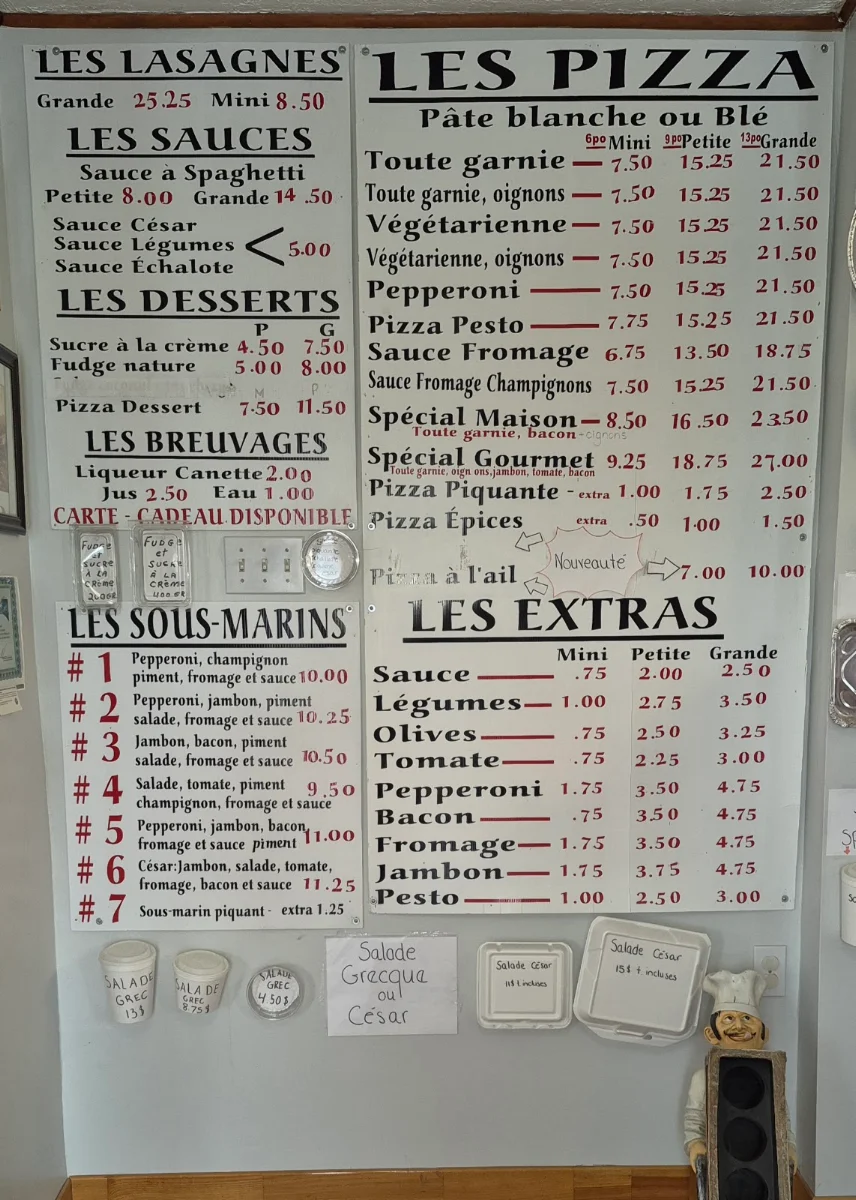 LES LASAGNES
Grande 25.25 Mini 8.50
LES SAUCES
Sauce à Spaghetti
Petite 8.00 Grande 14.50
Sauce César
Sauce Légumes < 5.00
Sauce Échalote
LES DESSERTS
P G
Sucre à la crème 4.50 7.50
Fudge nature 5.00 8.00
M P
Pizza Dessert 7.50 11.50
LES BREUVAGES
Liqueur Canette 2.00
Jus 2.50 Eau 1.00
CARTE - CADEAU DISPONIBLE
FUDGE
et
SUCRE
À LA
CRÈME
200GR
FUDGE
et
SUCRE
À LA
CRÈME
400GR
LES SOUS-MARINS
# 1 Pepperoni, champignon
piment, fromage et sauce 10.00
# 2 Pepperoni, jambon, piment
salade, fromage et sauce 10.25
# 3 Jambon, bacon, piment
salade, fromage et sauce 10.50
# 4 Salade, tomate, piment 9.50
champignon, fromage et sauce
# 5 Pepperoni, jambon, bacon,
fromage et sauce piment 11.00
# 6 César:Jambon, salade, tomate,
fromage, bacon et sauce 11.25
#. 7 Sous-marin piquant - extra 1.25
LES PIZZA
Pâte blanche ou Blé
6po Mini 9po Petite 13po Grande
Toute garnie — 7.50 15.25 21.50
Toute garnie, oignons — 7.50 15.25 21.50
Végétarienne — 7.50 15.25 21.50
Végétarienne, oignons — 7.50 15.25 21.50
Pepperoni — 7.50 15.25 21.50
Pizza Pesto — 7.75 15.25 21.50
Sauce Fromage 6.75 13.50 18.75
Sauce Fromage Champignons 7.50 15.25 21.50
Spécial Maison — 8.50 16.50 23.50
Toute garnie, bacon - oignons
Spécial Gourmet 9.25 18.75 27.00
Toute garnie, oign ons, jambon, tomate, bacon
Pizza Piquante - extra 1.00 1.75 2.50
Pizza Épices extra .50 1.00 1.50
Nouveauté
Pizza à l'ail 7.00 10.00
LES EXTRAS
Mini Petite Grande
Sauce — .75 2.00 2.50
Légumes — 1.00 2.75 3.50
Olives — .75 2.50 3.25
Tomate — .75 2.25 3.00
Pepperoni 1.75 3.50 4.75
Bacon — .75 3.50 4.75
Fromage — 1.75 3.50 4.75
Jambon — 1.75 3.75 4.75
Pesto — 1.00 2.50 3.00
SALADE
GREC
13$
SALADE
GREC
8.75$
SALADE
GREC
4.50$
Salade
Grecque
ou
César
Salade César
11$ t incluses
Salade César
15$ t incluses